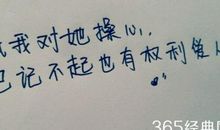 我对她操心
记不起也有权利爱
365经典